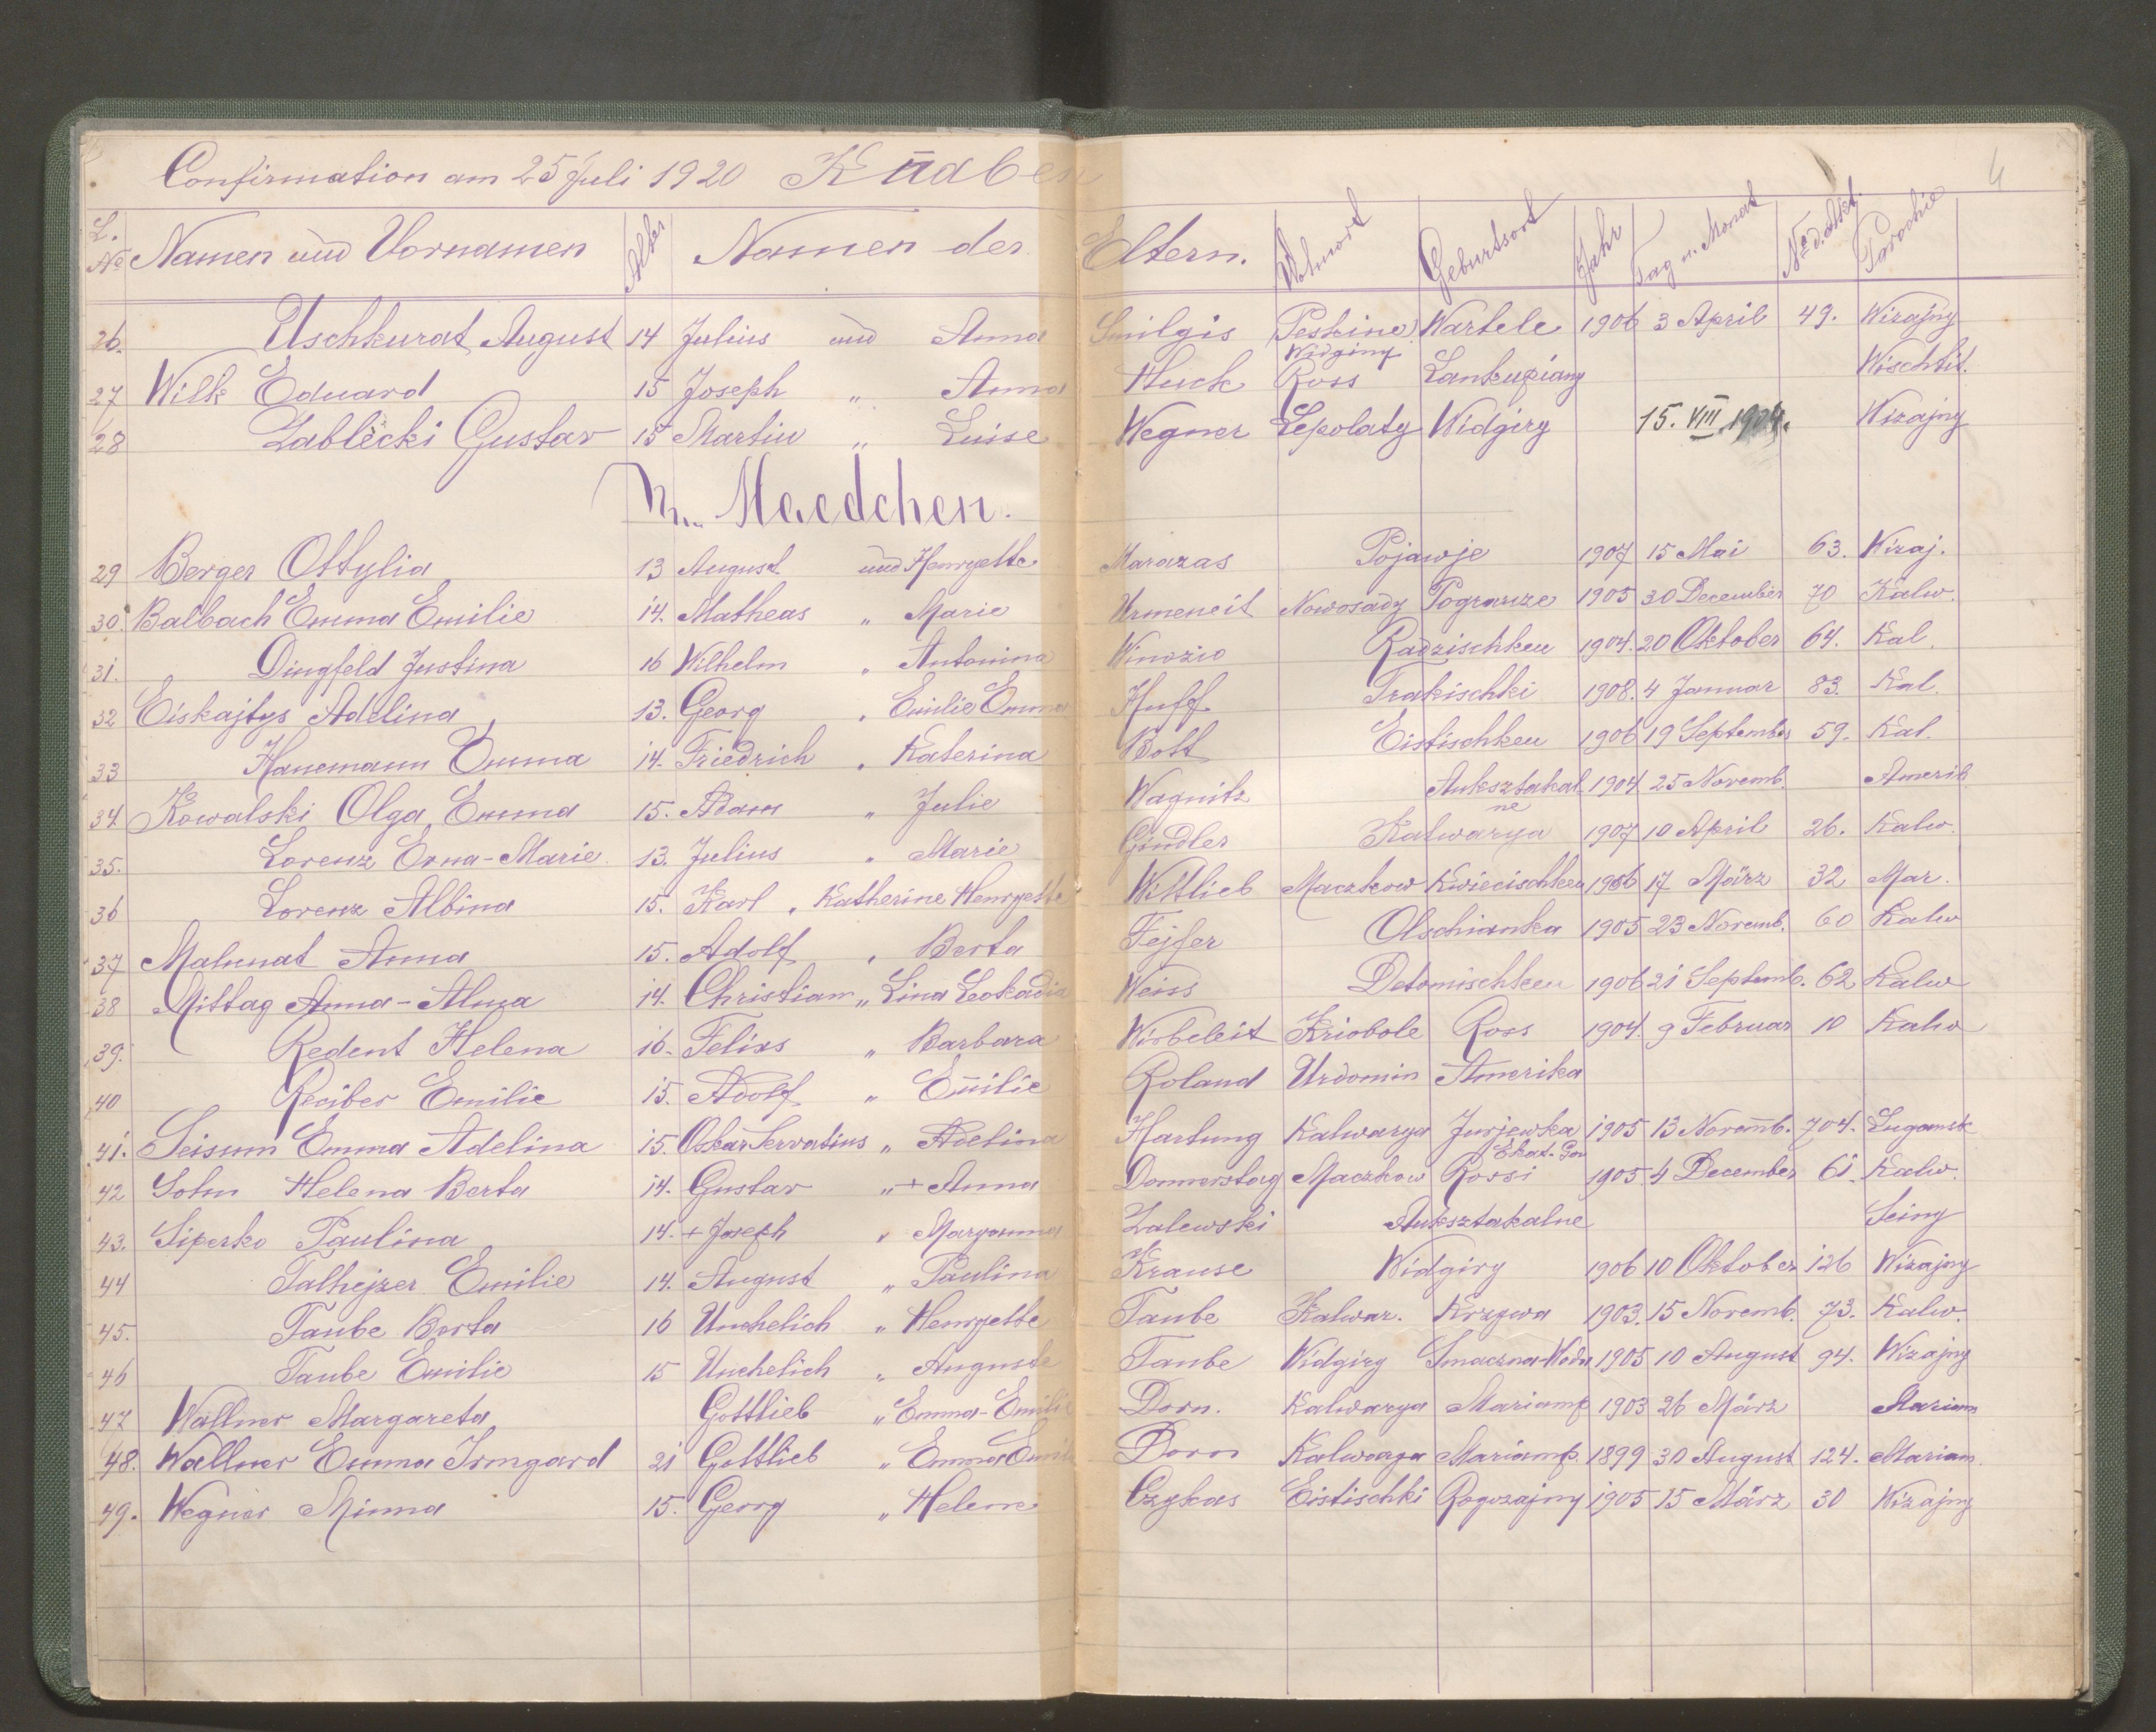 Confirmation am 25 Juli 1920 Knaben
4
L. No Namen und Vornamen Alter Namen der Eltern. Wohnort Geburtsort Jahr Tag u. Monat No d. Aktet. Parochie
26. Uschkurat August 14 Julius und Anna Smilgis Peskine Wartele 1906 3 April 49. Wizajny
27 Wilk Eduard 15 Joseph " Anna Huck Widginy Ross Lankupiany Wischtit.
28 Zablecki Gustav 15 Martin " Luise Wegner Lepolaty Widgiry 15. VIII 1904. Wizajny
Maedchen.
29 Berger Ottylia 13 August und Henryette Marazas Pojawje 1907 15 Mai 63. Wizaj.
30. Balbach Emma Emilie 14. Matheas " Marie Urmeneit Nowosady Pogranze 1905 30 December 70 Kalw.
31. Dingfeld Justina 16 Wilhelm " Antonina Winozio Radzischken 1904. 20 Oktober 64. Kal.
32 Eiskajtys Adelina 13. Georg " Emilie Emma Huff Trakischki 1908. 4 Januar 83. Kal.
33 Hanemann Emma 14. Friedrich " Katerina Bott Eistischken 1906 19 September 59. Kal.
34. Kowalski Olga Emma 15. Adam " Julie Wagnitz Auksztakalne 1904 25 Novemb. Amerik
35. Lorenz Erna-Marie. 13. Julius " Marie Gindler Kalwarya 1907 10 April 26. Kalw.
36 Lorenz Albina 15. Karl " Katherine Henryette Wittlieb Maczkow Kwiecischken 1906 17 März 32 Mar.
37 Malunat Anna 15. Adolf " Berta Fejfer Olschianka 1905 23 Novemb. 60 Kalw
38 Mittag Anna-Alma 14. Christian " Lina Leokadia Weiss Detomischken 1906 21 Septemb. 62 Kalw
39. Redent Helena 16. Felixs " Barbara Wisbeleit Kriobole Ross 1904. 9 Februar 10 Kalw
40 Reciber Emilie 15. Adolf " Emilie Roland Urdomin Amerika
41. Seissum Emma Adelina 15. Oskar Servatius " Adelina Hartung Kalwarya Jurjewka Ekat. Gou 1905 13 Novemb. 704. Lugansk
42 Sohn Helena Berta 14. Gustav " + Anna Donnerstag Maczkow Rossi 1905. 4 December 61. Kalw.
43. Siperko Paulina 14. + Joseph " Maryanna Zalewski Auksztakalne Seiny
44 Talhejzer Emilie 14. August " Paulina Krause Widgiry 1906 10 Oktober 126 Wizajny
45. Taube Berta 16 Unehelich " Henryette Taube Kalwar. Krzywa 1903. 15 Novemb. 73. Kalw.
46 Taube Emilie 15 Unehelich " Auguste Taube Widgiry Smaczna-Woda 1905 10 August 94. Wizajny
47 Wallner Margareta Gottlieb " Emma-Emilie Dorn. Kalwarya Mariamp 1903 26 März Mariam
48. Wallner Emma Irmgard 21 Gottlieb " Emma Emilie Dorn Kalwarya Mariamp. 1899 30 August 124. Mariam.
49. Wegner Minna 15. Georg " Helene Czykas Eistischki Rogozajny 1905 15 März 30 Wizajny